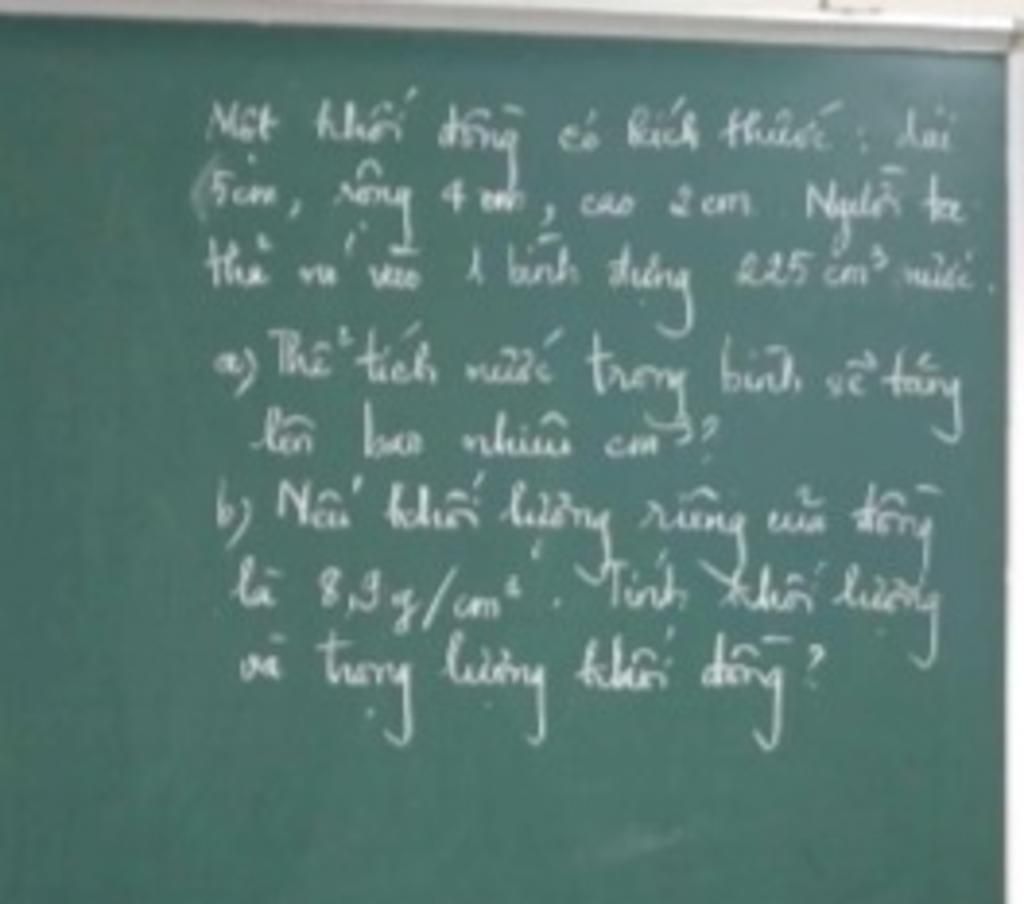 Một khối đồng có kích thước: dài
5cm, rộng 4 cm, cao 2 cm. Người ta
thả nó vào 1 bình đựng 225 cm³ nước.
a) Thể tích nước trong bình sẽ tăng
lên bao nhiêu cm³?
b) Nếu khối lượng riêng của đồng
là 8,9 g/cm³. Tính khối lượng
và trọng lượng khối đồng?